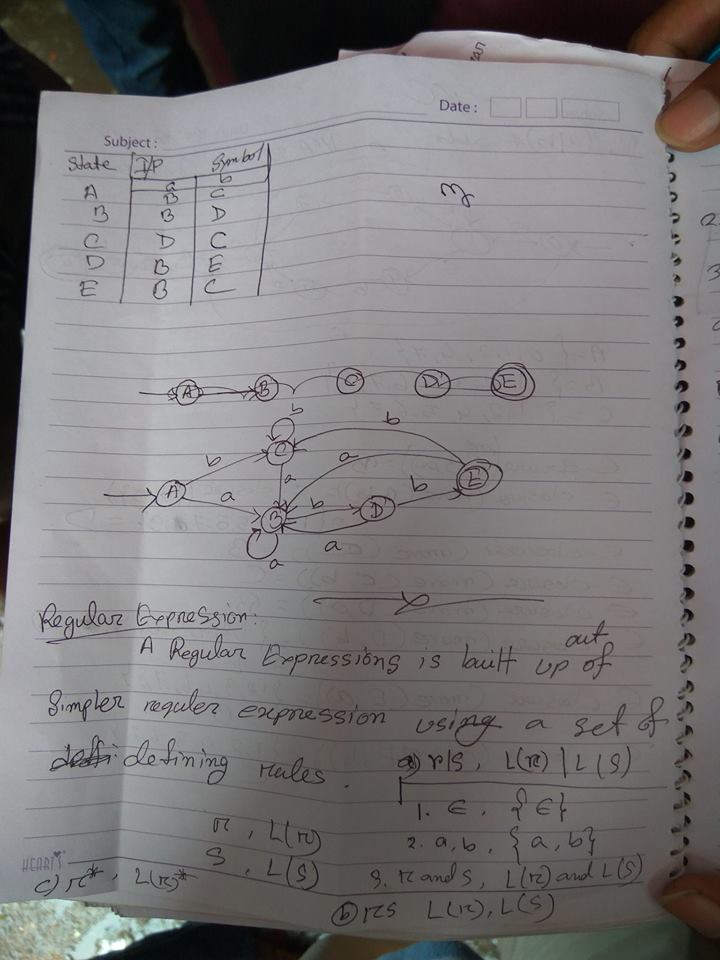 Date :
Subject :
State I/P Symbol
a b
A B C
B B D
C D C
D B E
E B C
A B C D E
b
b C b
a a
A a B b D b E
a
a
Regular Expression:
A Regular Expressions is built up out of
simpler reguler expression using a set of
defining rules.
a) r|s, L(r) | L(S)
1. ∈, {∈}
r, L(r)
2. a, b, {a, b}
S, L(S)
3. r and s, L(r) and L(S)
HEART
c) r*, L(r)*
b) rs L(r), L(S)